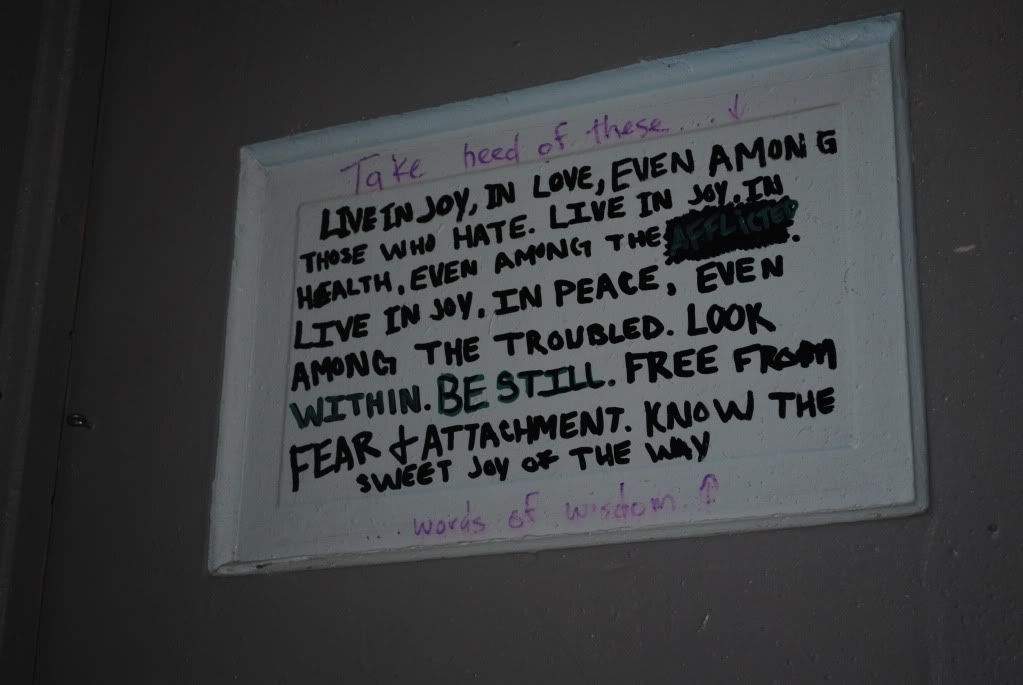 Take heed of these... ↓
LIVE IN JOY, IN LOVE, EVEN AMONG
THOSE WHO HATE. LIVE IN JOY. IN
HEALTH, EVEN AMONG THE AFFLICTED.
LIVE IN JOY. IN PEACE, EVEN
AMONG THE TROUBLED. LOOK
WITHIN. BE STILL. FREE FROM
FEAR & ATTACHMENT. KNOW THE
SWEET JOY OF THE WAY
...words of wisdom ↑